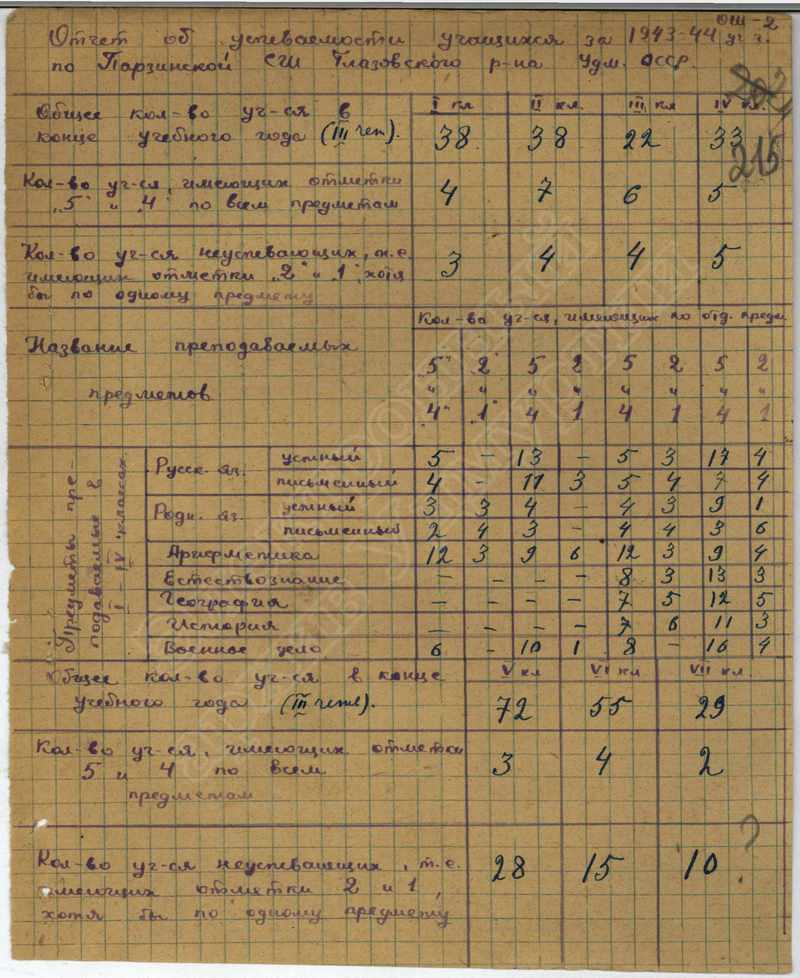 ОШ-2
Отчет об успеваемости учащихся за 1943-44 уч. г.
по Парзинской СШ Глазовского р-на Удм. АССР.
215
Общее кол-во уч-ся в I кл II кл. III кл IV кл.
конце учебного года (III чет). 38 38 22 33
Кол-во уч-ся, имеющих отметки 4 7 6 5
„5" и „4" по всем предметам
Кол-во уч-ся неуспевающих, т.е. 3 4 4 5
имеющих отметки „2" и „1", хотя
бы по одному предмету
Кол-во уч-ся, имеющих по отд. предм
Название преподаваемых
предметов
5" 2" 5 2 5 2 5 2
" " " " " " " "
4" 1" 4 1 4 1 4 1
Предметы пре-
подаваемые в
I - IV классах.
Русск. яз. устный 5 - 13 - 5 3 17 4
письменный 4 - 11 3 5 4 7 4
Родн. яз. устный 3 3 4 - 4 3 9 1
письменный 2 4 3 - 4 4 3 6
Арифметика 12 3 9 6 12 3 9 4
Естествознание - - - - 8 3 13 3
География - - - - 7 5 12 5
История - - - - 7 6 11 3
Военное дело 6 - 10 1 8 - 16 4
Общее кол-во уч-ся в конце V кл VI кл VII кл.
учебного года (III четв). 72 55 29
Кол-во уч-ся, имеющих отметки
5 и 4 по всем 3 4 2
предметам
?
Кол-во уч-ся неуспевающих, т.е. 28 15 10
имеющих отметки 2 и 1,
хотя бы по одному предмету